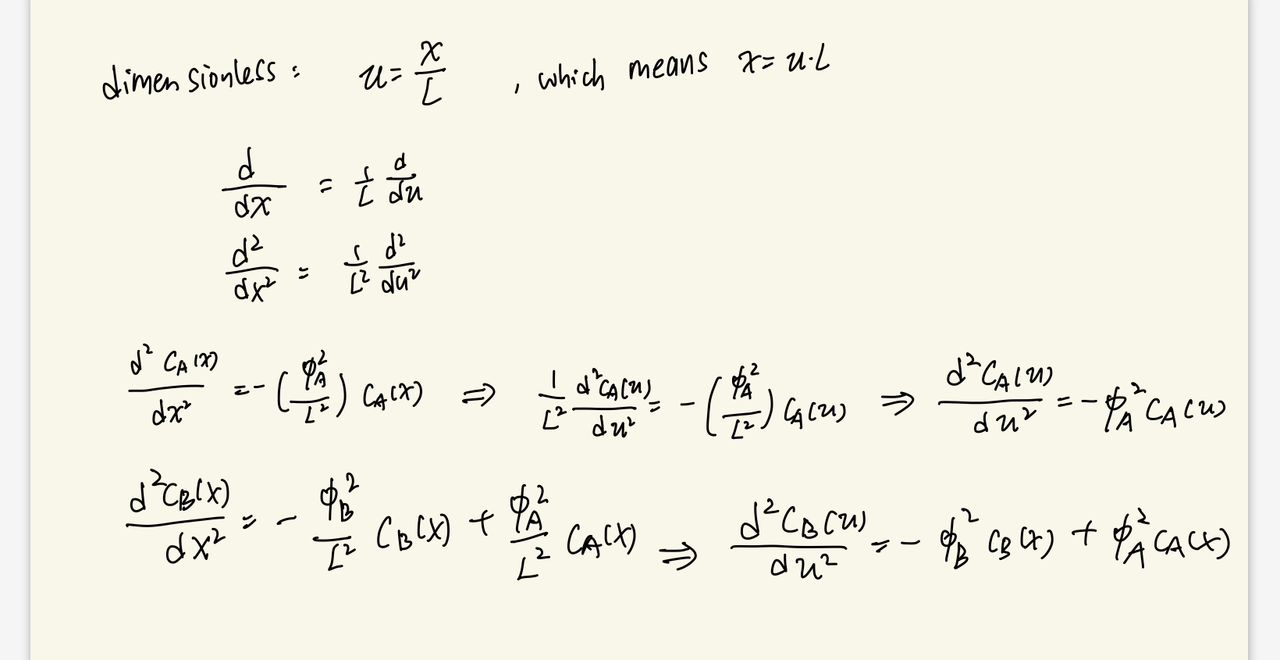 dimensionless: u = x/L , which means x = u·L
d/dx = 1/L d/du
d²/dx² = 1/L² d²/du²
d² C_A(x)/dx² = -(ϕ_A²/L²) C_A(x) ⇒ 1/L² d²C_A(u)/du² = -(ϕ_A²/L²) C_A(u) ⇒ d²C_A(u)/du² = -ϕ_A² C_A(u)
d²C_B(x)/dx² = - ϕ_B²/L² C_B(x) + ϕ_A²/L² C_A(x) ⇒ d²C_B(u)/du² = - ϕ_B² C_B(x) + ϕ_A² C_A(x)